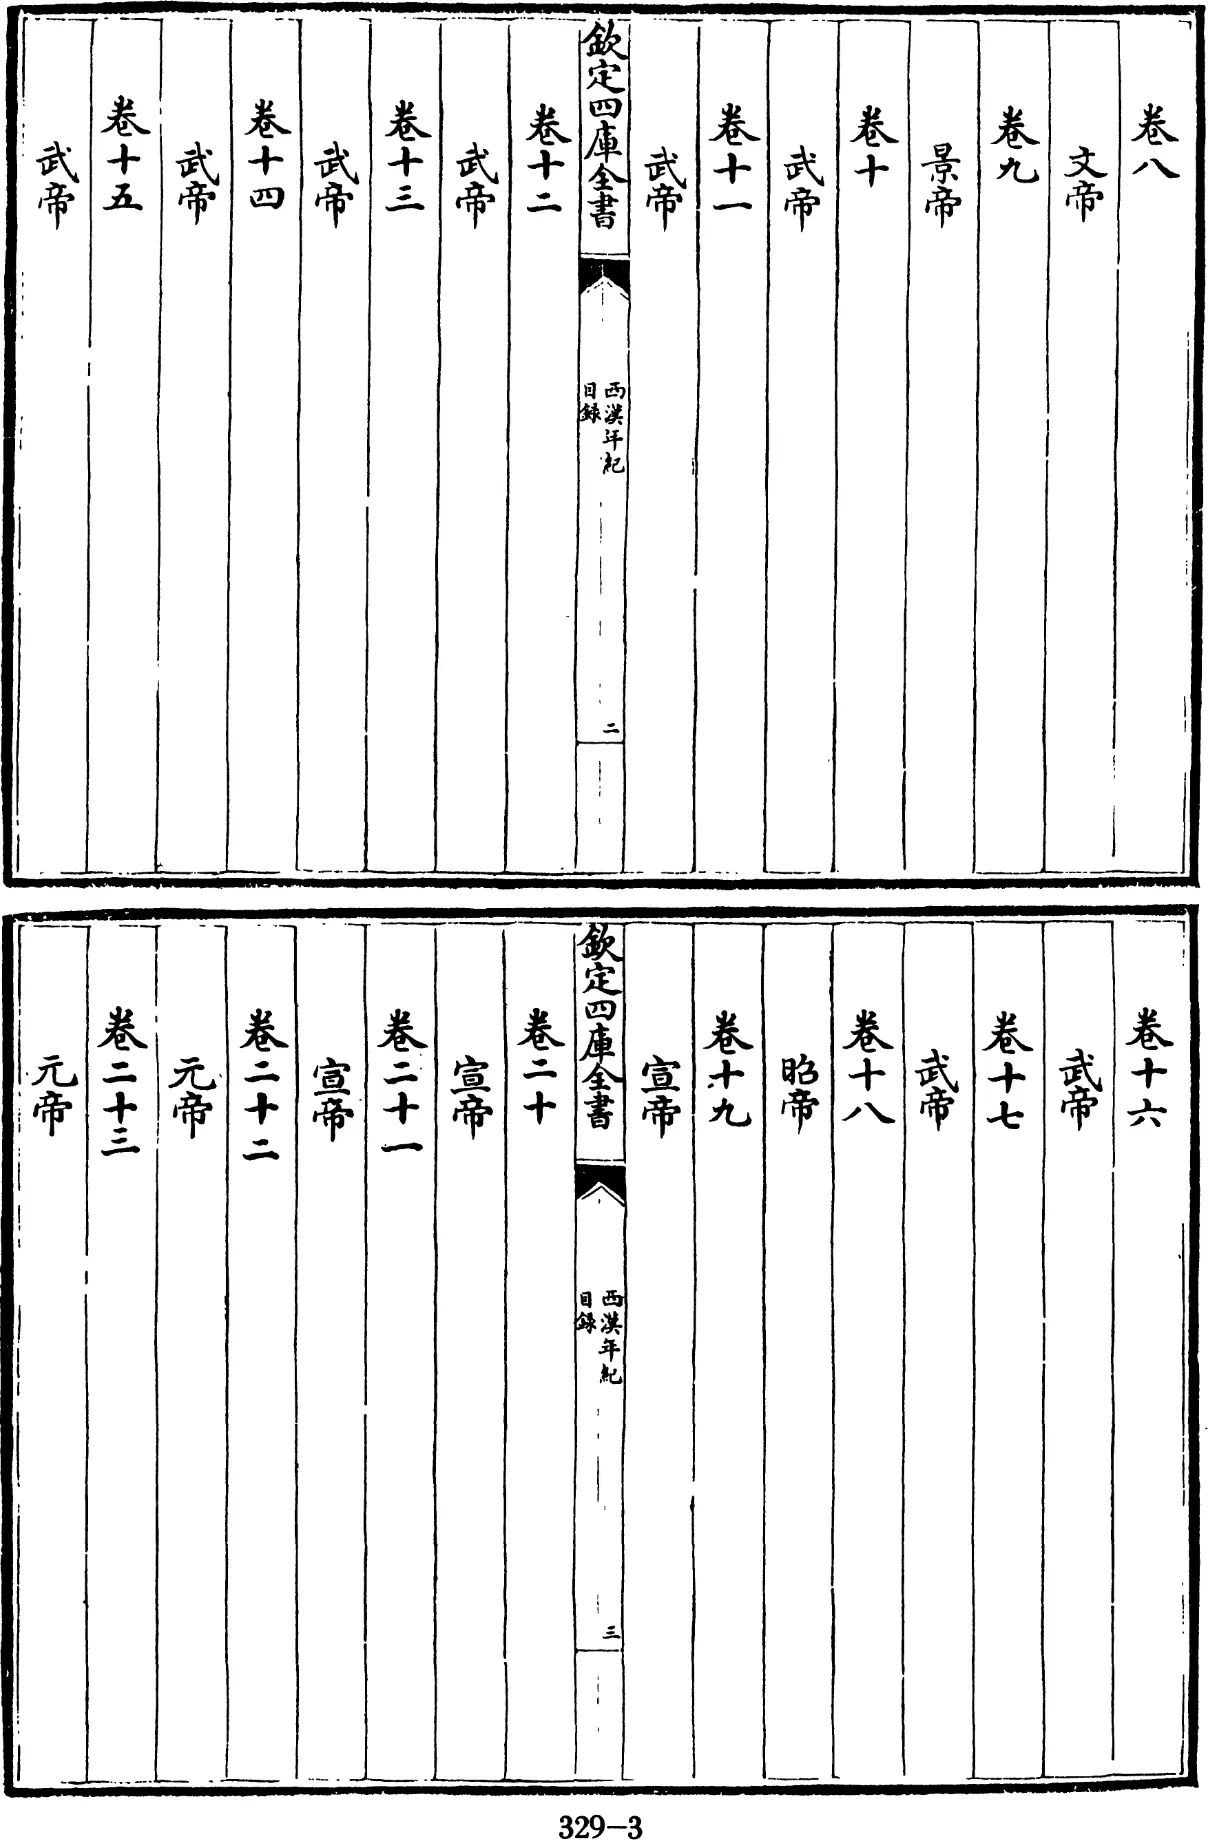 卷八
文帝
卷九
景帝
卷十
武帝
卷十一
武帝
欽定四庫全書
西漢年紀
目錄
二
卷十二
武帝
卷十三
武帝
卷十四
武帝
卷十五
武帝
卷十六
武帝
卷十七
武帝
卷十八
昭帝
卷十九
宣帝
欽定四庫全書
西漢年紀
目錄
三
卷二十
宣帝
卷二十一
宣帝
卷二十二
元帝
卷二十三
元帝
329-3